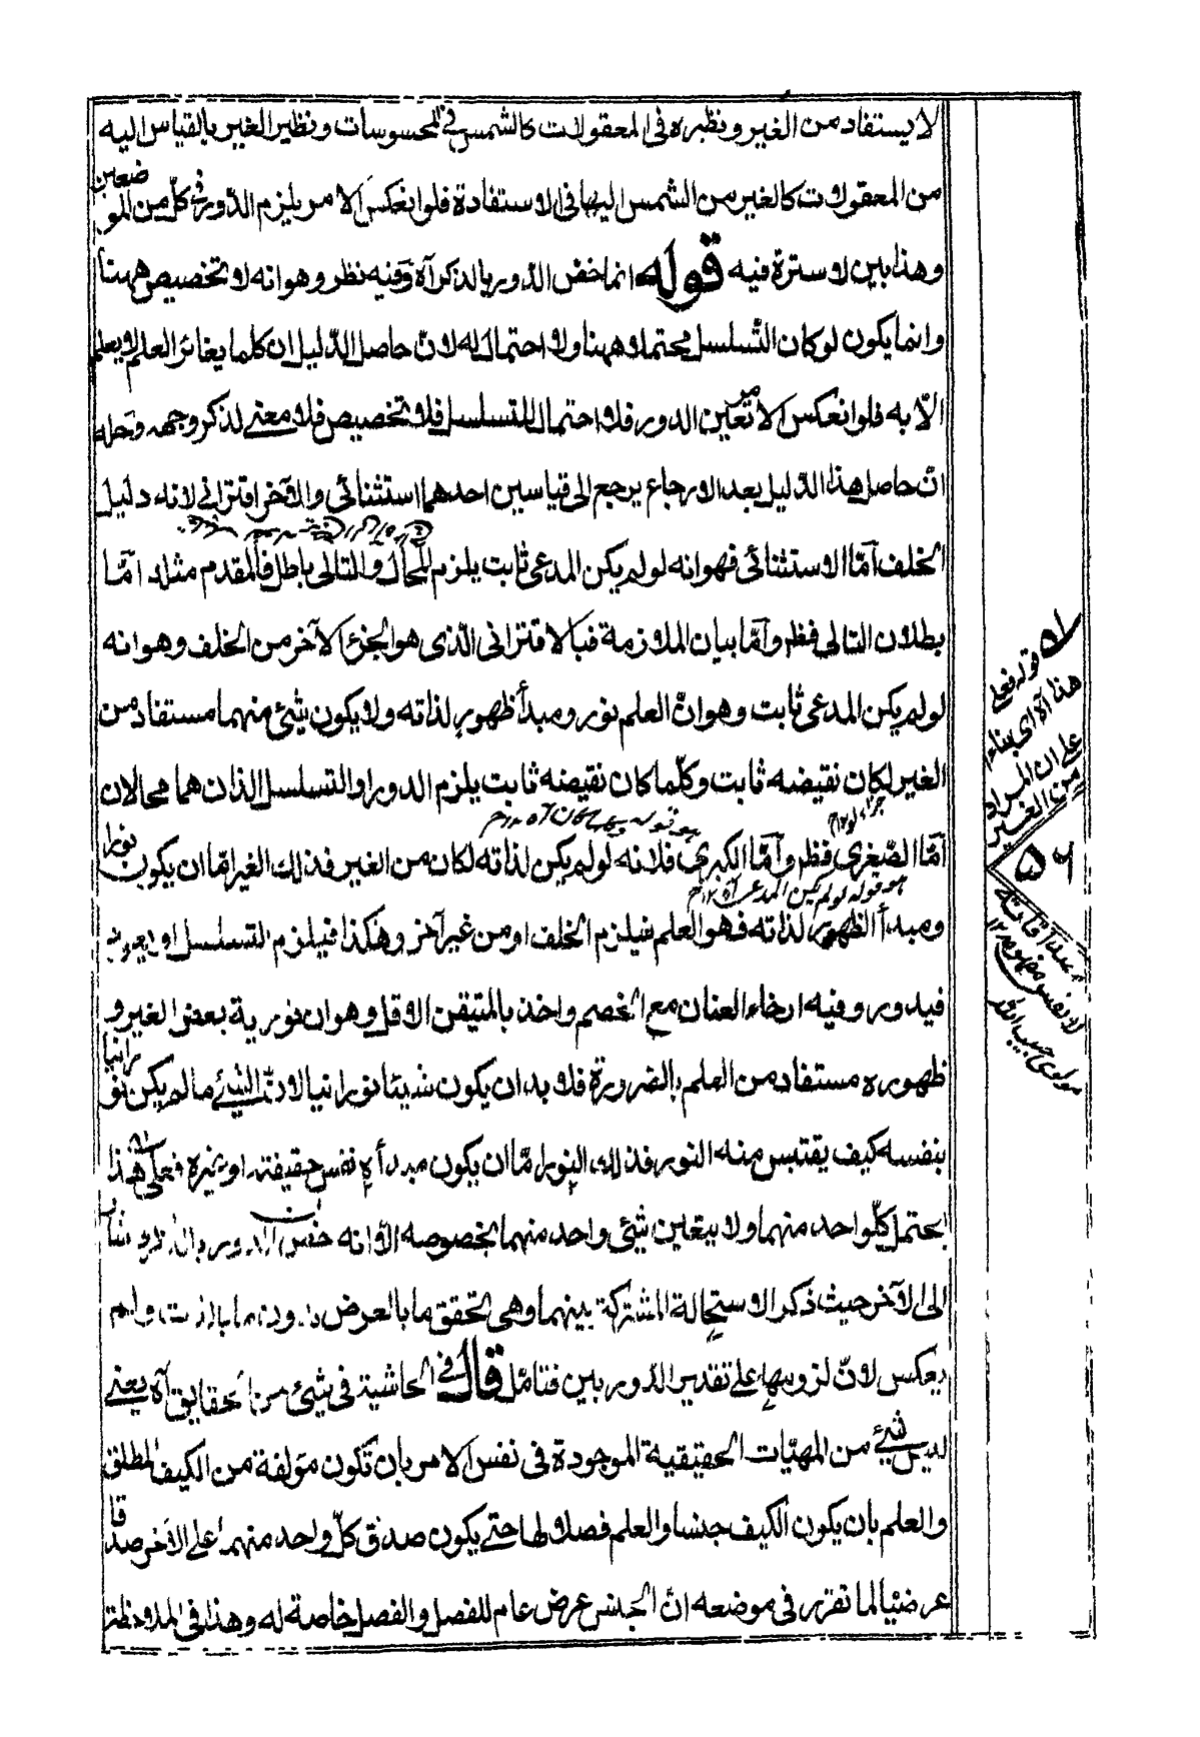 لا يستفاد من الغير ونظيره في المعقولات كالشمس في المحسوسات ونظير الغير بالقياس اليه
من المعقولات كالغير من الشمس اليها في الاستفادة فلو انعكس الامر يلزم الدور في كل من الموضعين
وهذا بين لا سترة فيه قوله انما خص الدور بالذكر آه وفيه نظر وهو انه لا تخصيص ههنا
وانما يكون لو كان التسلسل محتملا وههنا ولا احتمال له لان حاصل الدليل ان كلما يغائر العلم لا يعلم
الا به فلو انعكس الامر تعين الدور فلا احتمال للتسلسل فلا تخصيص فلا معنى لذكر وجهه وحله
ان حاصل هذا الدليل بعد الارجاع يرجع الى قياسين احدهما استثنائي والآخر اقتراني لانه دليل
الخلف اما الاستثنائي فهو انه لو لم يكن المدعى ثابت يلزم المحال والتالي باطل فالمقدم مثله اما
بطلان التالي فظ واما بيان الملازمة فبالاقتراني الذي هو الجزء الآخر من الخلف وهو انه
لو لم يكن المدعى ثابت وهو ان العلم نور ومبدأ ظهور لذاته ولا يكون شيئ منهما مستفاد من
الغير لكان نقيضه ثابت وكلما كان نقيضه ثابت يلزم الدور او التسلسل الذان هما محالان
اما الصغرى فظ واما الكبرى فلانه لو لم يكن لذاته لكان من الغير فذلك الغير اما ان يكون نورا
هو قوله لو لم يكن المدعى آه ١٢
ومبدأ الظهور لذاته فهو العلم فيلزم الخلف او من غير آخر وهكذا فيلزم التسلسل او يعود
فيدور وفيه ارخاء العنان مع الخصم واخذ بالمتيقن الاقل وهو ان نورية بعض الغير و
ظهوره مستفاد من العلم بالضرورة فلا بد ان يكون شيئا نورانيا لان الشيئ ما لم يكن نورانيا
بنفسه كيف يقتبس منه النور فذلك النور اما ان يكون مبدأه نفس حقيقته او غيره فعلى هذا
يحتمل كل واحد منهما ولا يتعين شيئ واحد منهما بخصوصه الا انه خص الدور بالذكر واشار
الى الآخر حيث ذكر الاستحالة المشتركة بينهما وهي تحقق ما بالعرض بدون ما بالذات ولم
يعكس لان لزومها على تقدير الدور بين فتامل قال في الحاشية في شيئ من الحقايق آه يعنى
ليس شيئ من المهيات الحقيقية الموجودة في نفس الامر بان تكون مؤلفة من الكيف المطلق
والعلم بان يكون الكيف جنسا والعلم فصلا لها حتى يكون صدق كل واحد منهما على الآخر صدقا
عرضيا لما تقرر في موضعه ان الجنس عرض عام للفصل والفصل خاصة له وهذا في الملاحظة
قوله فعلى
هذا آه اي بناء
على ان المراد
من الغير
٥٦
لا نفس مفهومه ١٢
مولوي حبيب الله